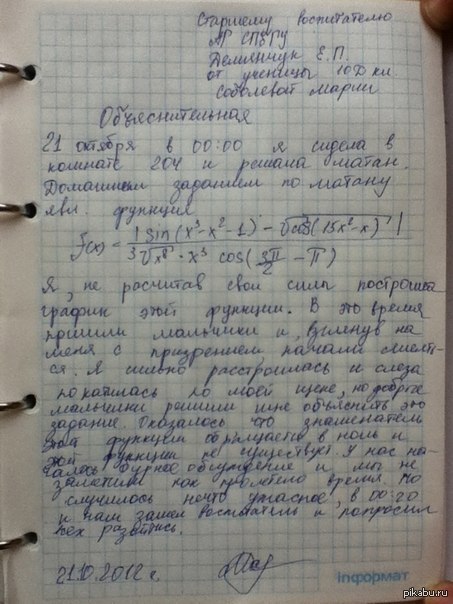 Старшему воспитателю
АГ СПбГУ
Демянчук Е.П.
от ученицы 10Д кл
Соболевой Марии
Объяснительная
21 октября в 00:00 я сидела в
комнате 204 и решала матан.
Домашним заданием по матану
явл. функция
f(x) = |sin(x³-x²-1) - √cos(15x²-x)| / 3√x⁸ · x³ cos(3π/2 - π)
Я, не расчитав свои силы построила
график этой функции. В это время
пришли мальчики и, взглянув на
меня с призрением начали смеят-
ся. Я сильно расстроилась и слеза
покатилась по моей щеке, но добрые
мальчики решили мне объяснить это
задание. Оказалось что знаменатель
этой функции обращается в ноль и
этой функции не существует. У нас на-
чалось бурное обсуждение и мы не
заметили как пролетело время. Но
случилось нечто ужасное, в 00:20
к нам зашел воспитатель и попросил
всех разойтись.
21.10.2012 г.
informат
pikabu.ru